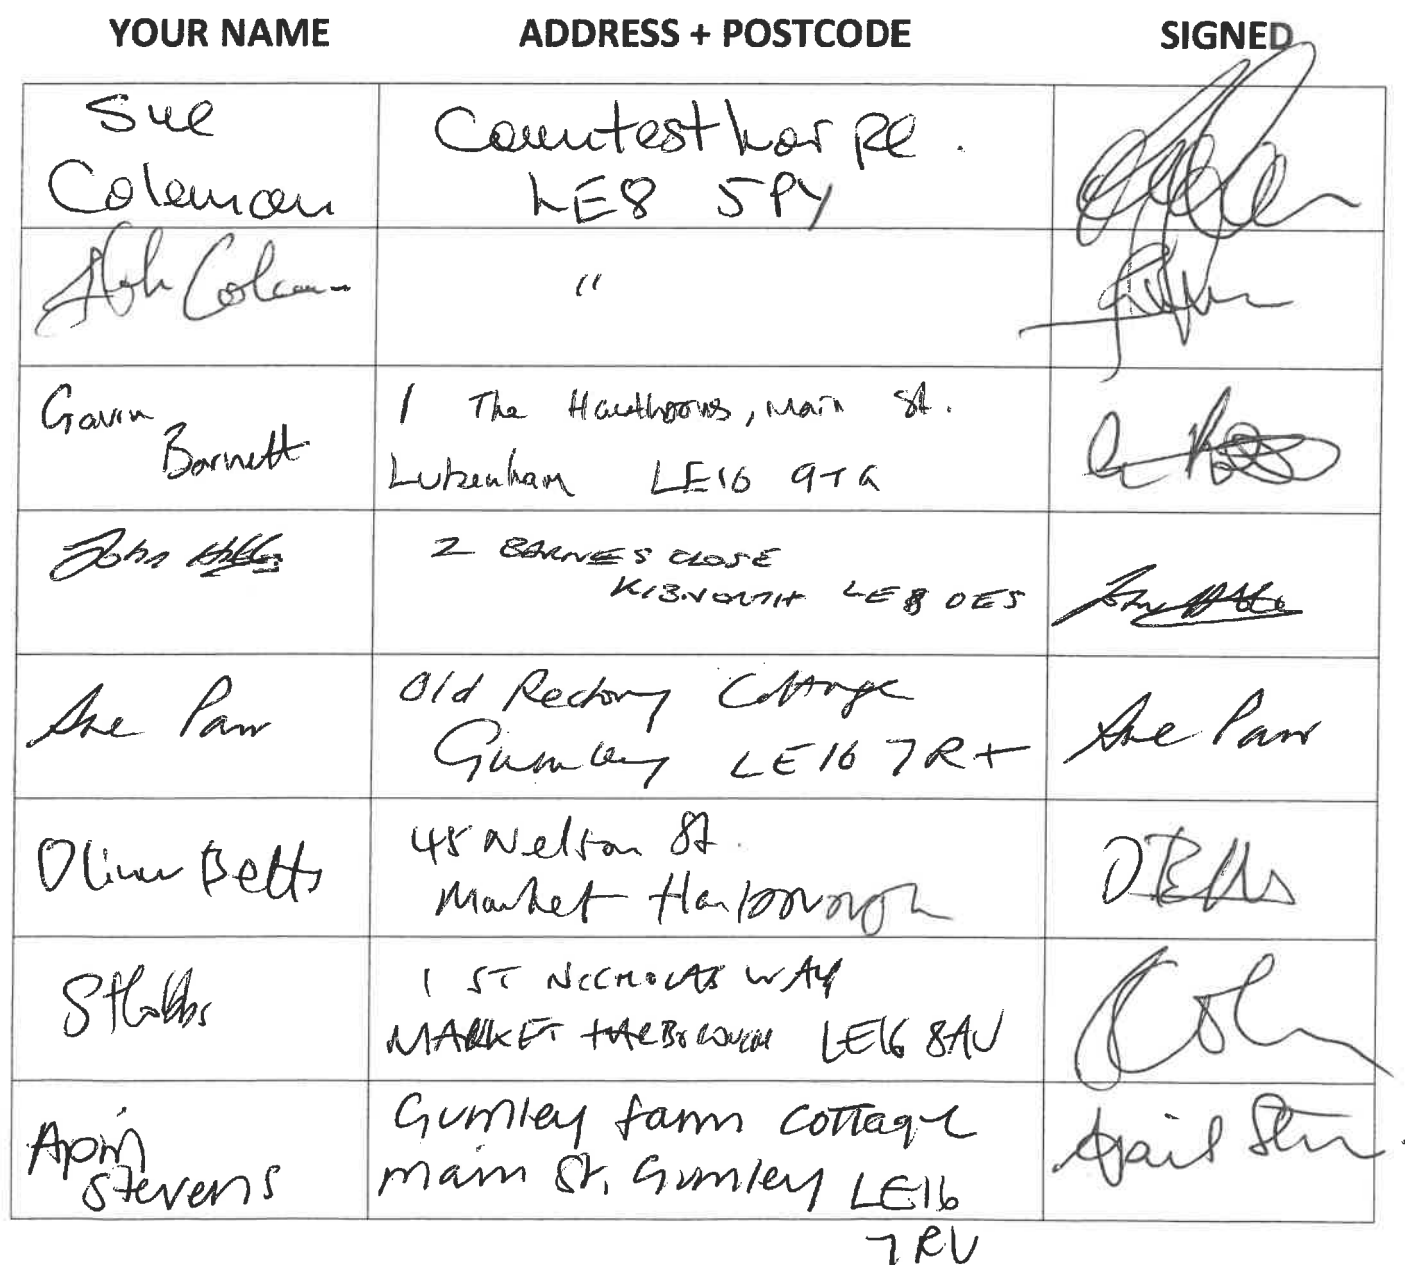 YOUR NAME ADDRESS + POSTCODE SIGNED
Sue
Coleman
Countesthorpe.
LE8 5PY
Coleman
"
Gavin
Barnett
1 The Hawthorns, Main St.
Lubenham LE16 9TG
John
2 BARNES CLOSE
KIBWORTH LE8 0ES
John
Sue Parr
Old Rectory Cottage
Gumley LE16 7RX
Sue Parr
Oliver Betts
45 Nelson St.
Market Harborough
O Betts
S Hobbs
1 ST NICHOLAS WAY
MARKET HARBOROUGH LE16 8AU
April
Stevens
Gumley farm cottage
main St, Gumley LE16
7RU
April